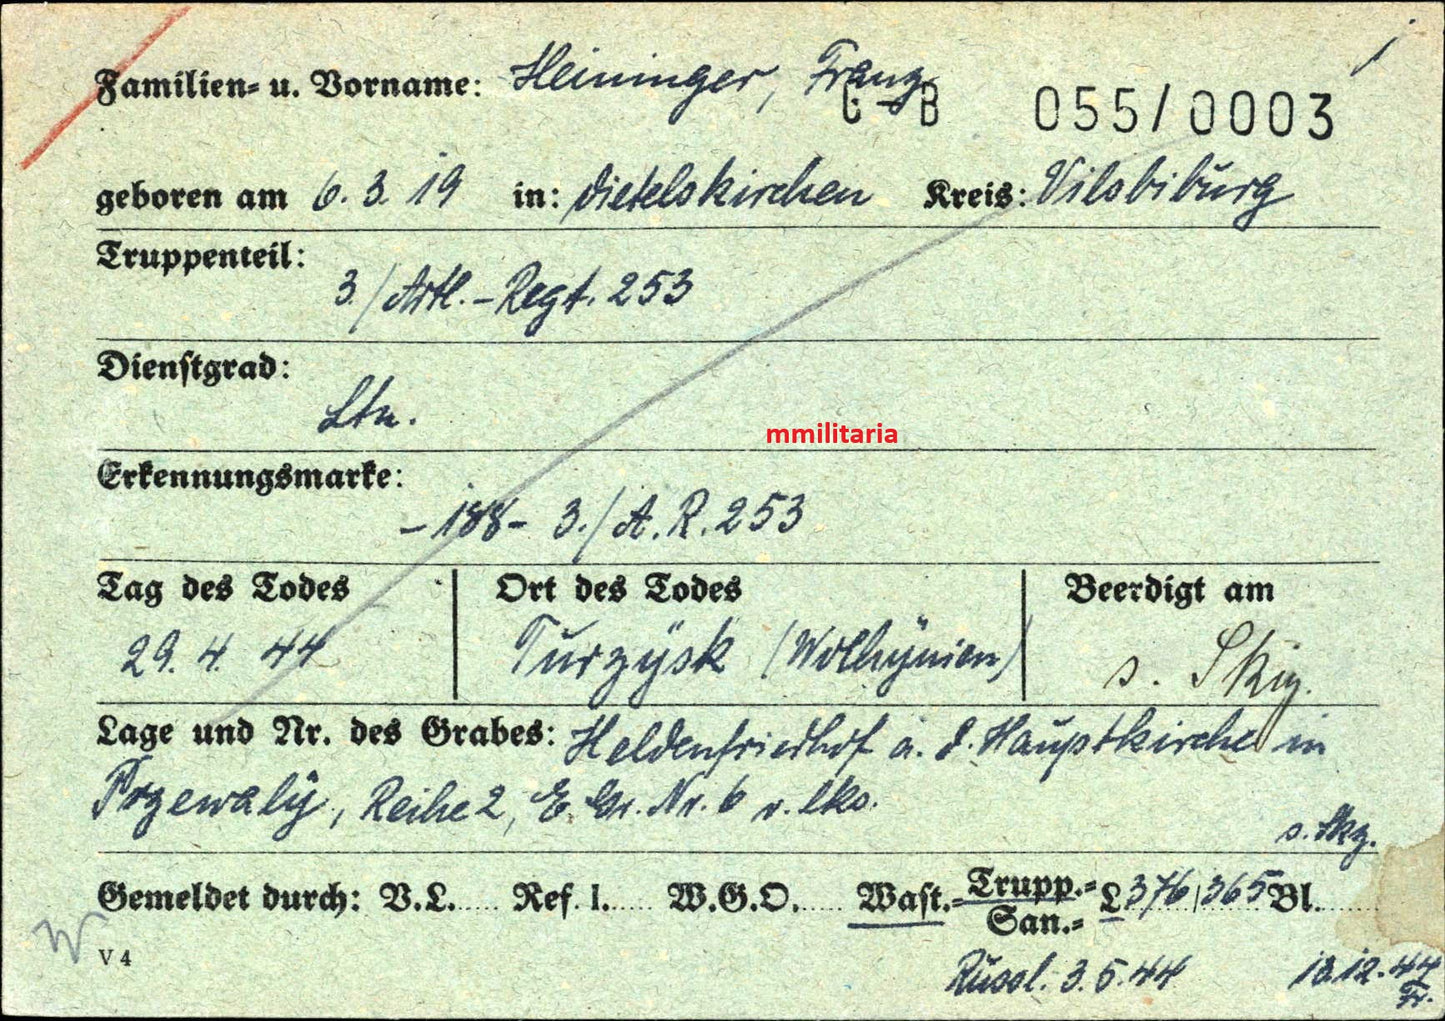 Familien- u. Vorname: Heininger, Franz
G - B 055/0003
geboren am 6.3.19 in: Dietelskirchen Kreis: Vilsbiburg
Truppenteil:
3./Artl.-Regt. 253
Dienstgrad:
Ltn.
mmilitaria
Erkennungsmarke:
-188- 3./A.R.253
Tag des Todes Ort des Todes Beerdigt am
29. 4. 44 Turzysk (Wolhynien) s. Skiz.
Lage und Nr. des Grabes: Heldenfriedhof a. d. Hauptkirche in
Przewaly, Reihe 2, E. Gr. Nr. 6 v. lks.
s. Skz.
Gemeldet durch: V.L..... Ref. 1..... W.G.O..... Wast.-Trupp.-L376/365 Bl.
San.-
V 4
Russl. 3.5.44 13.12.44
Fr.